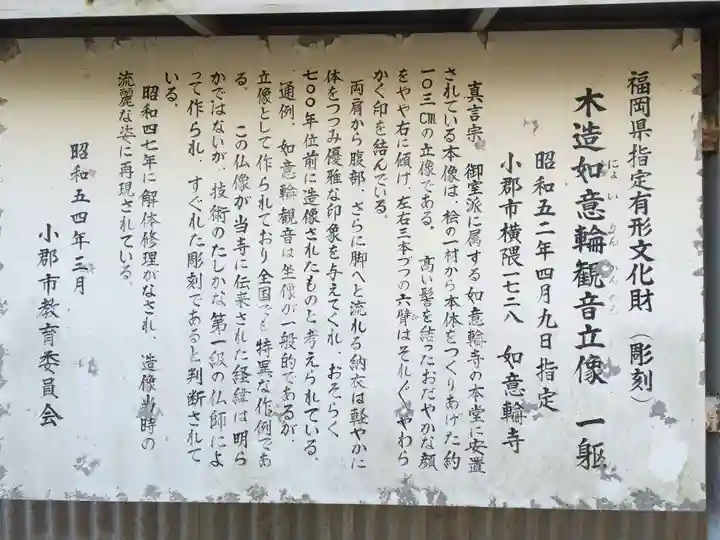 福岡県指定有形文化財（彫刻）
木造如意輪観音立像 一躯
にょいりんかんのん
昭和五二年四月九日指定
小郡市横隈一七二八 如意輪寺
真言宗 御室派に属する如意輪寺の本堂に安置
されている本像は、桧の一材から本体をつくりあげた約
一〇三㎝の立像である。高い髻を結ったおだやかな顔
をやや右に傾け、左右三本づつの六臂はそれぞれやわら
かく印を結んでいる。
両肩から腹部、さらに脚へと流れる納衣は軽やかに
体をつつみ優雅な印象を与えてくれ、おそらく
七〇〇年位前に造像されたものと考えられている。
通例、如意輪観音は坐像が一般的であるが
立像として作られており全国でも特異な作例であ
る。この仏像が当寺に伝来された経緯は明ら
かではないが、技術のたしかな第一級の仏師によ
って作られ、すぐれた彫刻であると判断されて
いる。
昭和四七年に解体修理がなされ、造像当時の
流麗な姿に再現されている。
昭和五四年三月
小郡市教育委員会